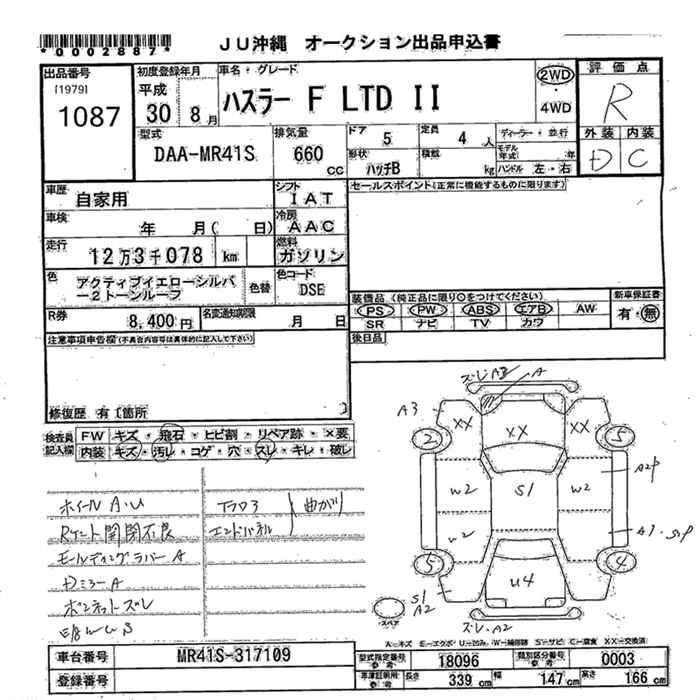 *0002887*
JU沖縄 オークション出品申込書
出品番号
[1979]
1087
初度登録年月
平成
30 8月
車名・グレード
ハスラー F LTD II
2WD
・
4WD
評価点
R
外装 内装
D C
型式
DAA-MR41S
排気量
660
cc
ドア 5
定員 4 人
ディーラー・並行
形状 ハッチB
積載 kg
モデル年式 年
ハンドル 左・右
車歴 自家用
シフト
IAT
セールスポイント(正常に機能するものに限ります)
車検 年 月( 日)
冷房
AAC
走行
12万3千078 km
燃料
ガソリン
色
アクティブイエローシルバ
ー2トーンルーフ
色替
色コード
DSE
装備品(純正品に限り○をつけてください)
新車保証書
PS PW ABS エアB AW
有・無
SR ナビ TV カワ
R券 8,400円
名変通知期限 月 日
後日品
注意事項申告欄(不具合内容等は具体的に記入して下さい)
修復歴 有 1箇所
検査員
記入欄
FW キズ・飛石・ヒビ割・リペア跡・×要
内装 キズ・汚レ・コゲ・穴・スレ・キレ・破レ
ホイールA.U
Rゲート開閉不良
モールディングラバーA
DミラーA
ボンネットズレ
フロア
エンドパネル
曲がり
ズレA3
A
A3
XX
XX
XX
2
5
W2
S1
W2
A2P
W2
5
4
U4
S1
A2
ズレ.A2
スペア
A=キズ E=エクボ U=凹み W=補修跡 S=サビ C=腐食 XX=交換済
車台番号
MR41S-317109
型式指定番号
参考
18096
類別区分番号
参考
0003
登録番号
車庫証明用
参考
長さ 339 cm
幅 147 cm
高さ 166 cm